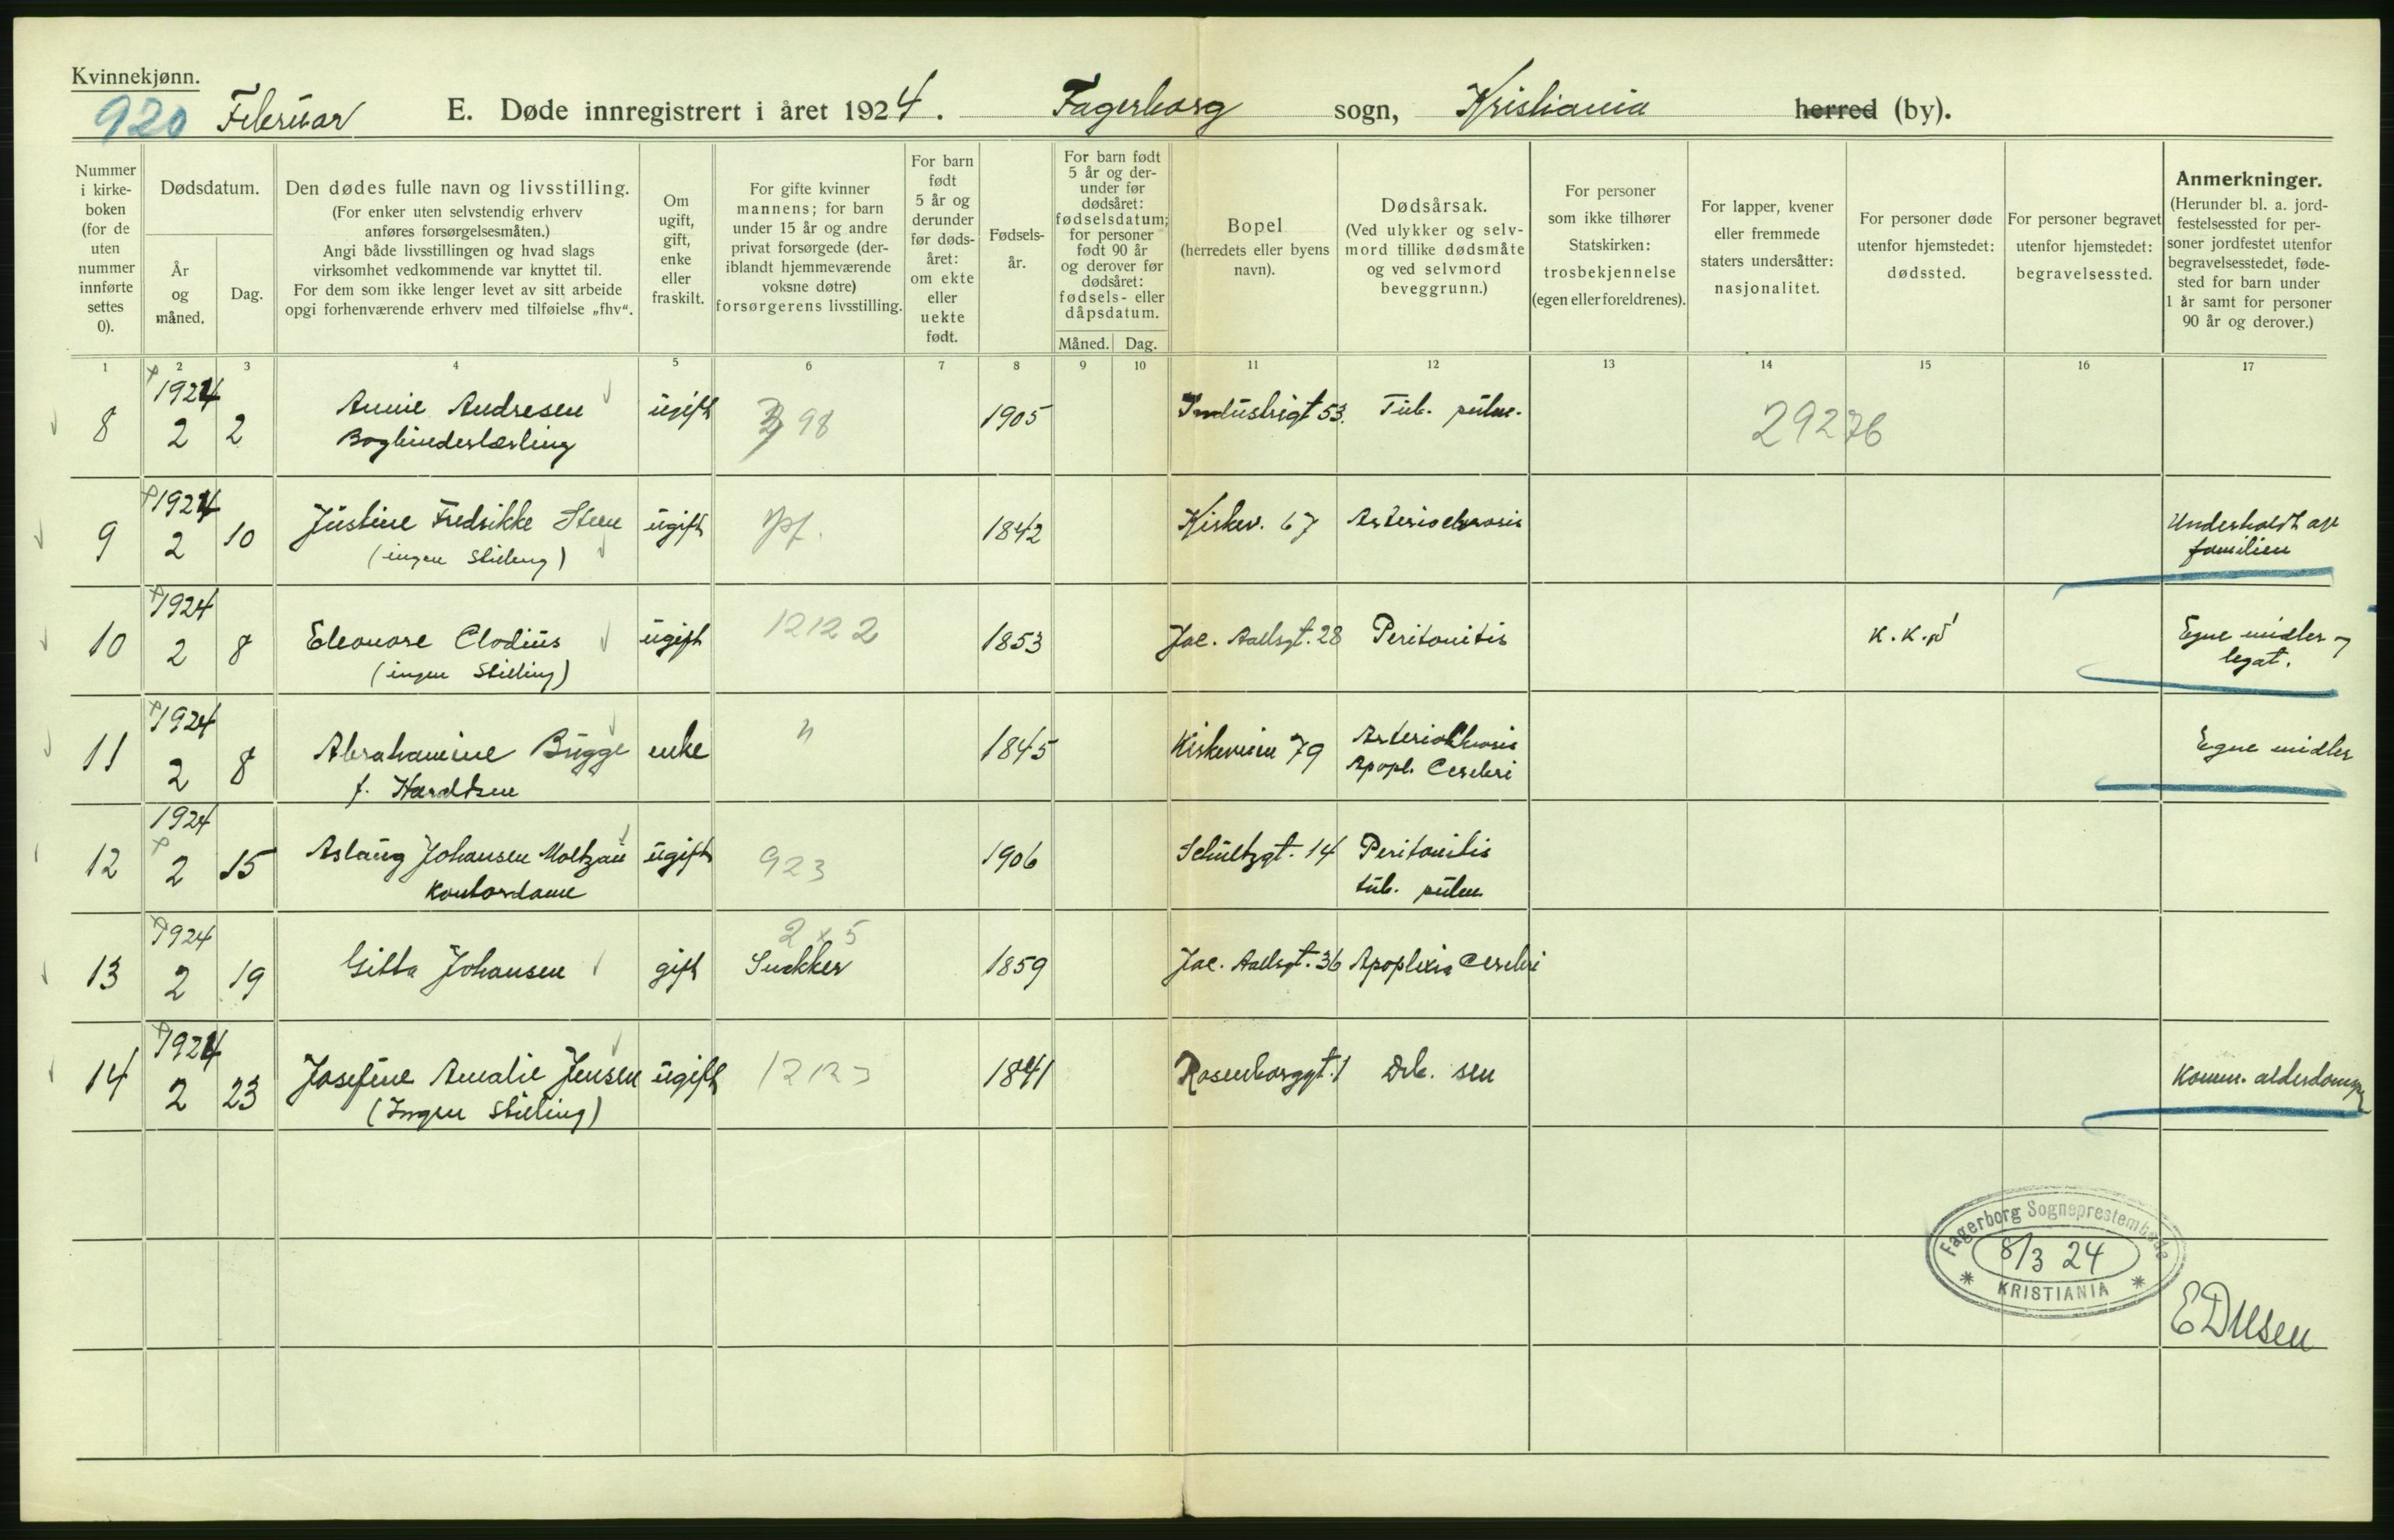 Kvinnekjønn.
920 Februar E. Døde innregistrert i året 1924. Fagerborg sogn, Kristiania herred (by).
Nummer i kirkeboken (for de uten nummer innførte settes 0).
Dødsdatum.
År og måned.
Dag.
Den dødes fulle navn og livsstilling.
(For enker uten selvstendig erhverv
anføres forsørgelsesmåten.)
Angi både livsstillingen og hvad slags
virksomhet vedkommende var knyttet til.
For dem som ikke lenger levet av sitt arbeide
opgi forhenværende erhverv med tilføielse „fhv“.
Om ugift, gift, enke eller fraskilt.
For gifte kvinner
mannens; for barn
under 15 år og andre
privat forsørgede (der-
iblandt hjemmeværende
voksne døtre)
forsørgerens livsstilling.
For barn
født
5 år og
derunder
før døds-
året:
om ekte
eller
uekte
født.
Fødsels-
år.
For barn født
5 år og der-
under før
dødsåret:
fødselsdatum;
for personer
født 90 år
og derover før
dødsåret:
fødsels- eller
dåpsdatum.
Måned. Dag.
Bopel
(herredets eller byens
navn).
Dødsårsak.
(Ved ulykker og selv-
mord tillike dødsmåte
og ved selvmord
beveggrunn.)
For personer
som ikke tilhører
Statskirken:
trosbekjennelse
(egen eller foreldrenes).
For lapper, kvener
eller fremmede
staters undersåtter:
nasjonalitet.
For personer døde
utenfor hjemstedet:
dødssted.
For personer begravet
utenfor hjemstedet:
begravelsessted.
Anmerkninger.
(Herunder bl. a. jord-
festelsessted for per-
soner jordfestet utenfor
begravelsesstedet, føde-
sted for barn under
1 år samt for personer
90 år og derover.)
1 2 3 4 5 6 7 8 9 10 11 12 13 14 15 16 17
8 1924 2 2 Annie Andresen ugift 98 1905 Industrigt 53. Tub. pulm. 29276
Bogbinderlærling
9 1924 2 10 Justine Fredrikke Steen ugift 1842 Kirkev. 67 Underholdt av
(ingen Stilling) familien
10 1924 2 8 Eleonore Clodius ugift 12122 1853 Jac. Aallsgt. 28 Peritonitis K. K. Egne midler og
(ingen Stilling) legat.
11 1924 2 8 Abrahamine Bugge enke " 1845 Kirkeveien 79 Egne midler
f. Apopl. Cerebri
12 1924 2 15 Aslaug Johansen Moltzau ugift 923 1906 Schultzgt. 14 Peritonitis
Kontordame tub. pulm
13 1924 2 19 Gitta Johansen gift 2 x 5 Snekker 1859 Jac. Aallsgt. 36 Apoplexia Cerebri
14 1924 2 23 Josefine Amalie Jensen ugift 1841 Rosenborggt. 1 Deb. sen Komm. alderdomspg
(Ingen Stilling)
Fagerborg Sogneprestembede
8/3 24
KRISTIANIA